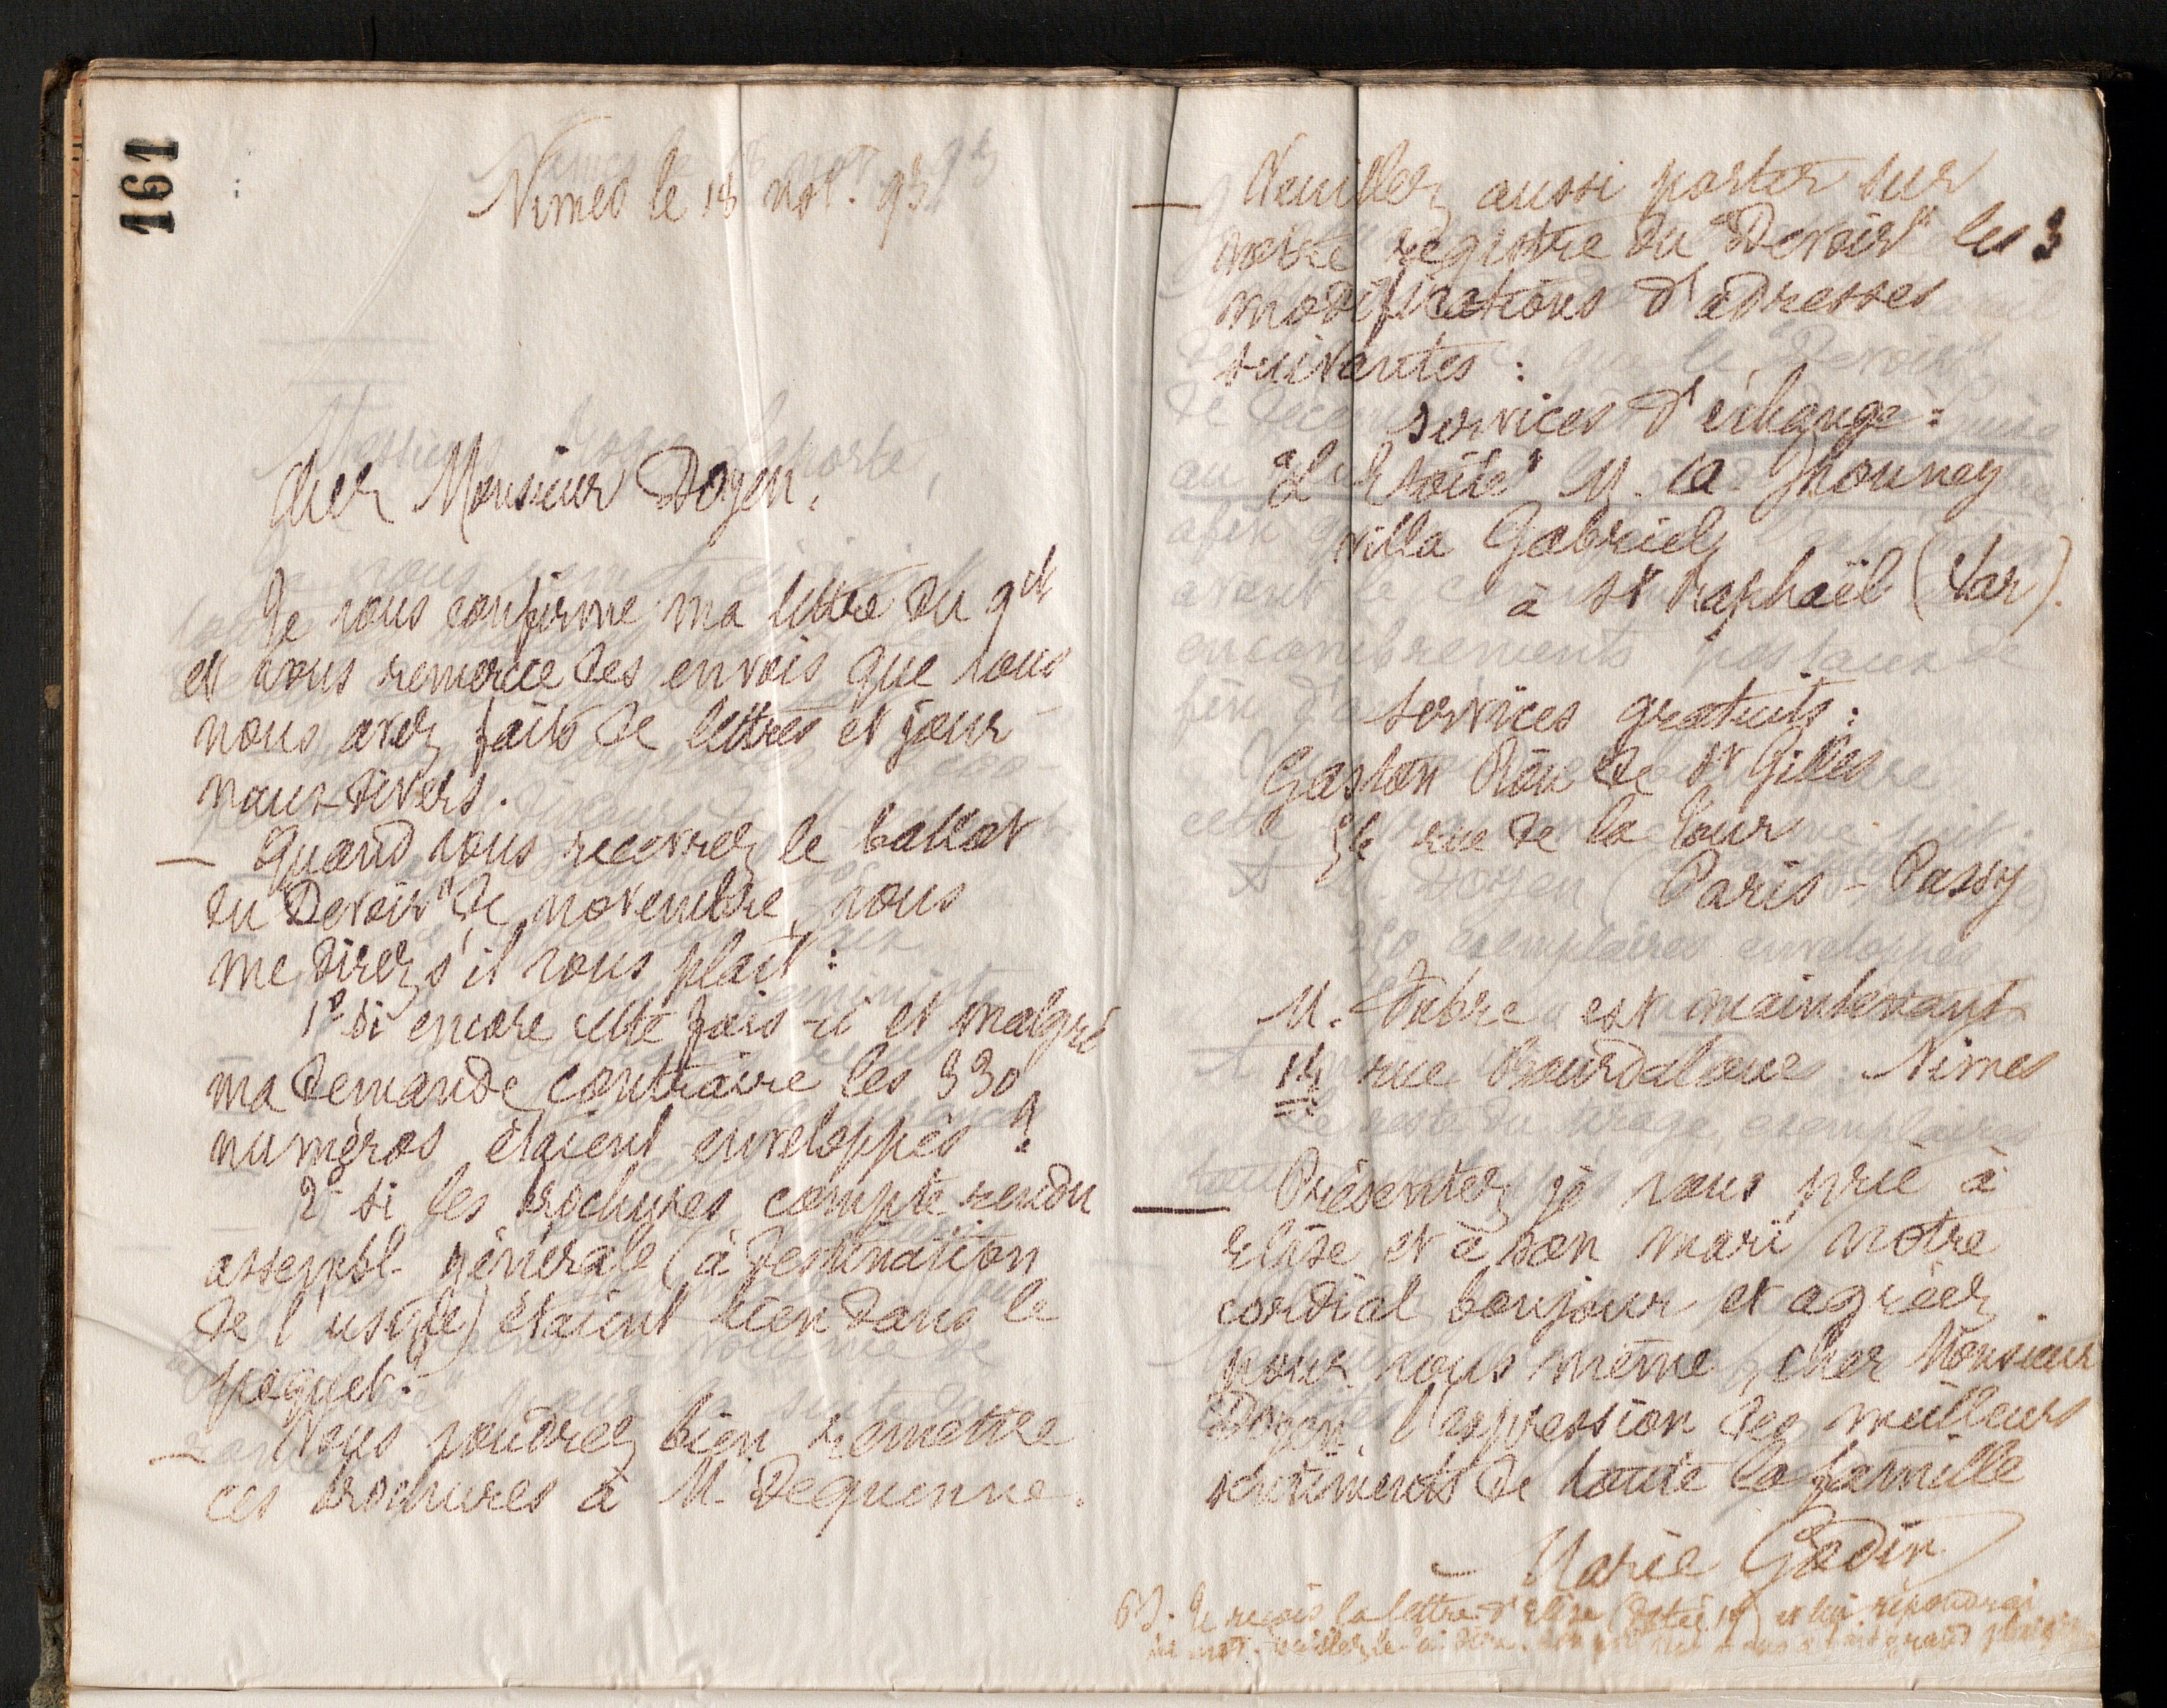 161
Nimes le 18 nov. 93
Cher Monsieur Doyen,
Je vous confirme ma lettre du 9 ct
et vous remercie des envois que vous
nous avez faits de lettres et jour-
naux divers.
— Quand vous recevrez le ballot
du "Devoir" de novembre, vous
me direz s'il vous plaît :
1º si encore cette fois-ci et malgré
ma demande contraire les 330
numéros étaient enveloppés ?
2º si les brochures compte-rendu
assembl. générale (à destination
de l'usine) étaient bien dans le
paquet.
— Vous voudrez bien remettre
ces brochures à M. Dequenne.
— Veuillez aussi porter sur
votre registre du "Devoir" les 3
modifications d'adresses
suivantes :
services d'échange :
"L'Etoile" M. A Jhouney
villa Gabriel
à St Raphaël (Var).
services gratuits :
Gaston de St Gilles
rue de la Tour
Paris - Passy
M. Fabre est maintenant
14 rue Bourdaloue Nimes
— Présentez je vous prie à
Elise et à son mari notre
cordial bonjour et agréez
pour vous même, cher Monsieur
Doyen, l'expression des meilleurs
sentiments de toute la famille
Marie Godin
P.S. Je reçois la lettre d'Elise (datée 17) et lui répondrai
grand plaisir